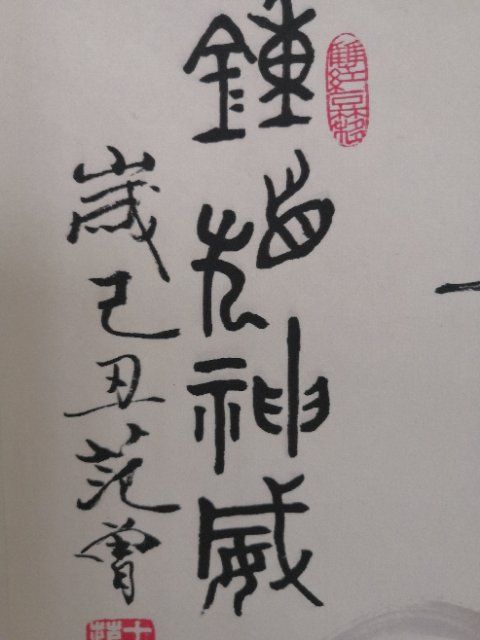 鍾馗神威
歲己丑范曾